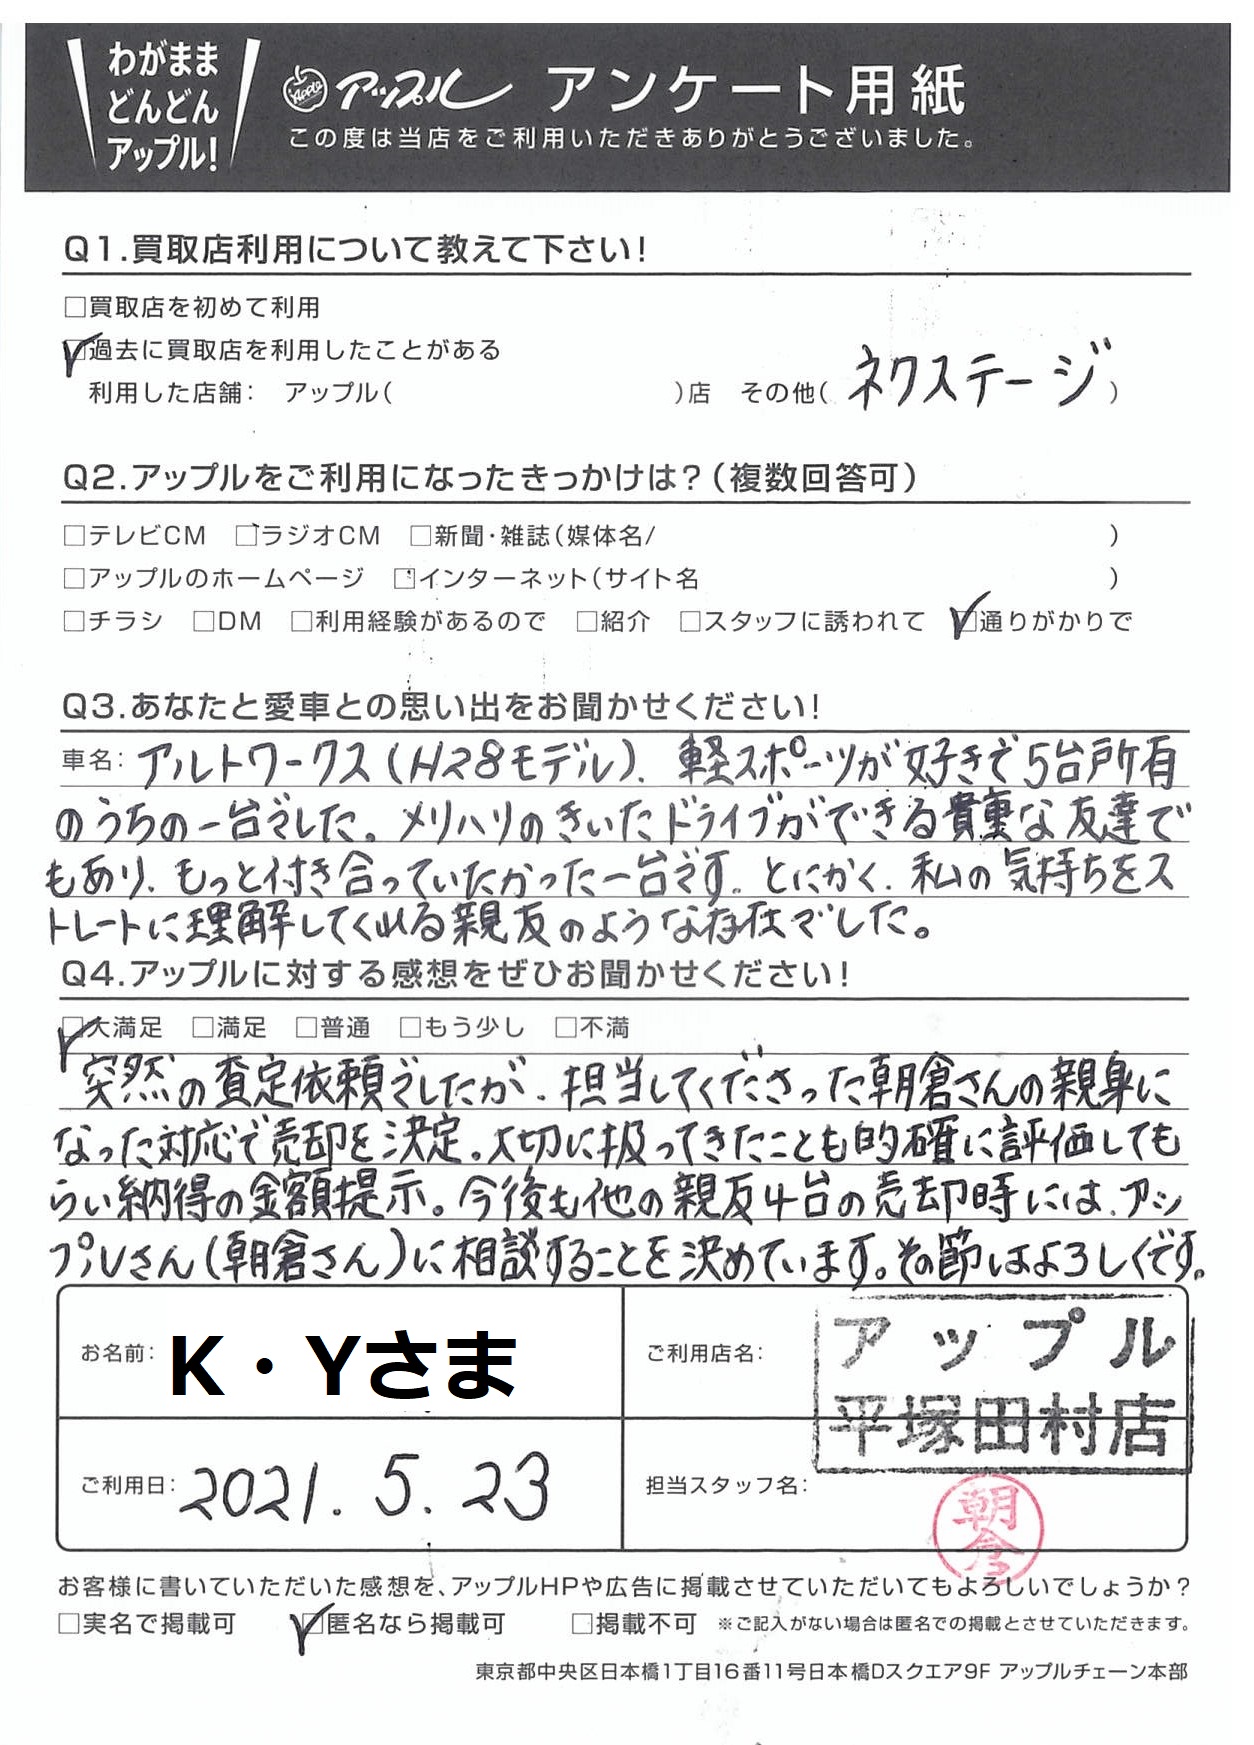 わがまま
どんどん
アップル!
Apple アップル アンケート用紙
この度は当店をご利用いただきありがとうございました。
Q1.買取店利用について教えて下さい!
□買取店を初めて利用
☑過去に買取店を利用したことがある
利用した店舗: アップル( )店 その他( ネクステージ )
Q2.アップルをご利用になったきっかけは?(複数回答可)
□テレビCM □ラジオCM □新聞・雑誌(媒体名/ )
□アップルのホームページ □インターネット(サイト名 )
□チラシ □DM □利用経験があるので □紹介 □スタッフに誘われて ☑通りがかりで
Q3.あなたと愛車との思い出をお聞かせください!
車名: アルトワークス(H28モデル). 軽スポーツが好きで5台所有
のうちの一台でした。メリハリのきいたドライブができる貴重な友達で
もあり、もっと付き合っていたかった一台です。とにかく、私の気持ちをス
トレートに理解してくれる親友のような存在でした。
Q4.アップルに対する感想をぜひお聞かせください!
☑大満足 □満足 □普通 □もう少し □不満
突然の査定依頼でしたが、担当してくださった朝倉さんの親身に
なった対応で売却を決定。大切に扱ってきたことも的確に評価しても
らい納得の金額提示。今後も他の親友4台の売却時には、アッ
プルさん(朝倉さん)に相談することを決めています。その節はよろしくです。
お名前: K・Yさま ご利用店名: アップル
平塚田村店
ご利用日: 2021.5.23 担当スタッフ名: 朝倉
お客様に書いていただいた感想を、アップルHPや広告に掲載させていただいてもよろしいでしょうか?
□実名で掲載可 ☑匿名なら掲載可 □掲載不可 ※ご記入がない場合は匿名での掲載とさせていただきます。
東京都中央区日本橋1丁目16番11号日本橋Dスクエア9F アップルチェーン本部